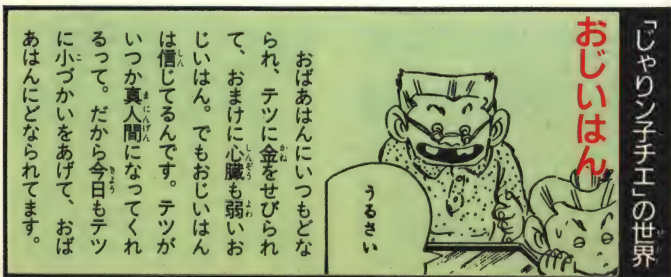 「じゃリン子チエ」の世界
おじいはん
うるさい
おばあはんにいつもどな
られ、テツに金をせびられ
て、おまけに心臓も弱いお
じいはん。でもおじいはん
は信じてるんです。テツが
いつか真人間になってくれ
るって。だから今日もテツ
に小づかいをあげて、おば
あはんにどなられてます。